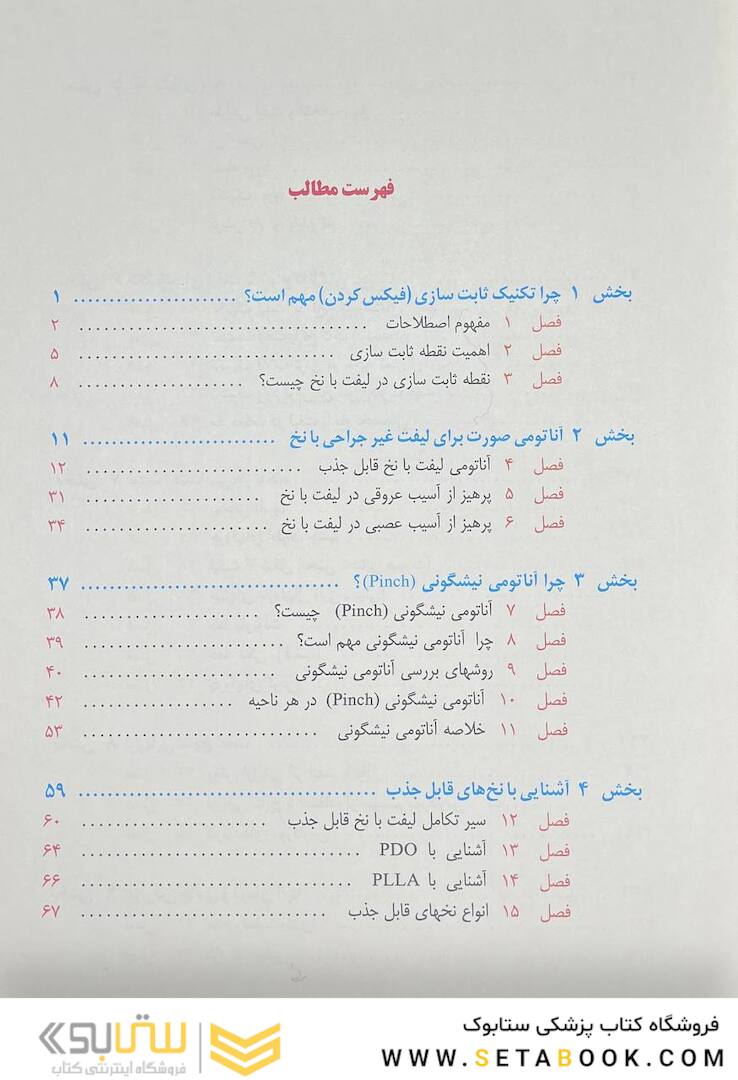 فهرست مطالب
بخش ۱ چرا تکنیک ثابت سازی (فیکس کردن) مهم است؟ ....................... ۱
فصل ۱ مفهوم اصطلاحات .................................... ۲
فصل ۲ اهمیت نقطه ثابت سازی ............................... ۵
فصل ۳ نقطه ثابت سازی در لیفت با نخ چیست؟ ..................... ۸
بخش ۲ آناتومی صورت برای لیفت غیر جراحی با نخ ........................... ۱۱
فصل ۴ آناتومی لیفت با نخ قابل جذب ........................... ۱۲
فصل ۵ پرهیز از آسیب عروقی در لیفت با نخ ...................... ۳۱
فصل ۶ پرهیز از آسیب عصبی در لیفت با نخ ....................... ۳۴
بخش ۳ چرا آناتومی نیشگونی (Pinch)؟ .................................... ۳۷
فصل ۷ آناتومی نیشگونی (Pinch) چیست؟ ...................... ۳۸
فصل ۸ چرا آناتومی نیشگونی مهم است؟ ......................... ۳۹
فصل ۹ روشهای بررسی آناتومی نیشگونی ........................ ۴۰
فصل ۱۰ آناتومی نیشگونی (Pinch) در هر ناحیه ................... ۴۲
فصل ۱۱ خلاصه آناتومی نیشگونی ............................. ۵۳
بخش ۴ آشنایی با نخ‌های قابل جذب .......................................... ۵۹
فصل ۱۲ سیر تکامل لیفت با نخ قابل جذب ....................... ۶۰
فصل ۱۳ آشنایی با PDO ................................... ۶۴
فصل ۱۴ آشنایی با PLLA .................................. ۶۶
فصل ۱۵ انواع نخهای قابل جذب ............................... ۶۷
فروشگاه کتاب پزشکی ستابوک
WWW.SETABOOK.COM
ستابوک
فروشگاه اینترنتی کتاب